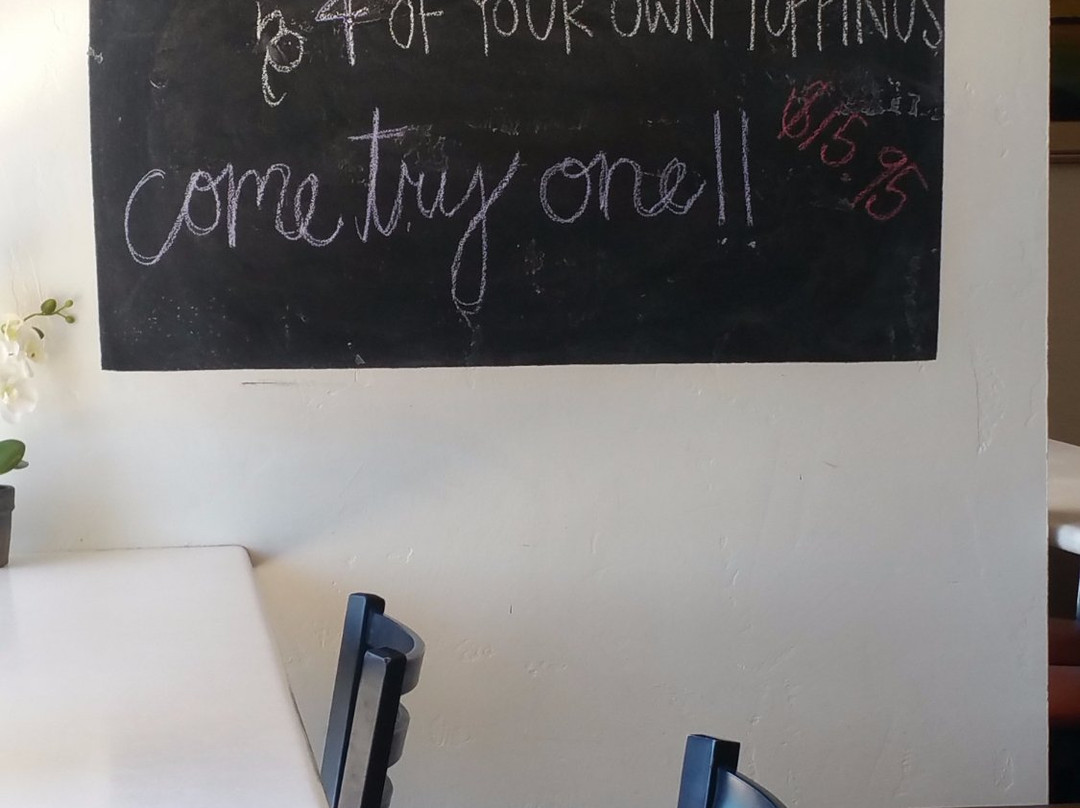 & 4 OF YOUR OWN TOPPINGS
come try one!!